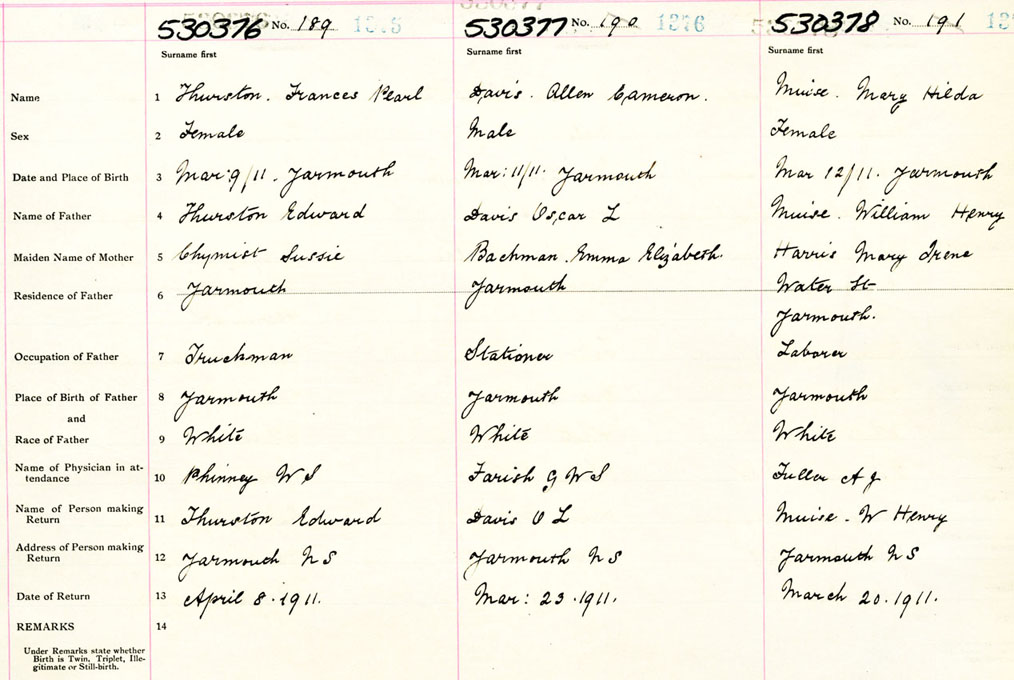 530376 No. 189 1375 530377 No. 190 1376 530378 No. 191
Surname first Surname first Surname first
Name 1 Thurston. Frances Pearl Davis. Allen Cameron. Muise. Mary Hilda
Sex 2 Female Male Female
Date and Place of Birth 3 Mar: 9/11. Yarmouth Mar: 11/11. Yarmouth Mar 12/11. Yarmouth
Name of Father 4 Thurston Edward Davis Oscar L Muise. William Henry
Maiden Name of Mother 5 Chymist Sussie Bachman. Emma Elizabeth. Harris Mary Irene
Residence of Father 6 Yarmouth Yarmouth Water St
Yarmouth.
Occupation of Father 7 Truckman Stationer Laborer
Place of Birth of Father 8 Yarmouth Yarmouth Yarmouth
and
Race of Father 9 White White White
Name of Physician in at-
tendance 10 Phinney W S Farish G W S Fuller A J
Name of Person making
Return 11 Thurston Edward Davis O L Muise. W Henry
Address of Person making
Return 12 Yarmouth N S Yarmouth N S Yarmouth N S
Date of Return 13 April 8. 1911. Mar: 23. 1911. March 20. 1911.
REMARKS 14
Under Remarks state whether
Birth is Twin, Triplet, Ille-
gitimate or Still-birth.